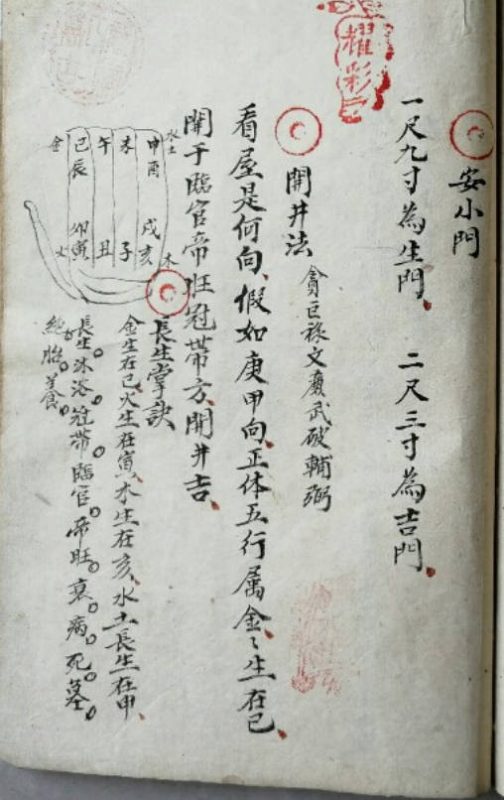 安小門
一尺九寸為生門、 二尺三寸為吉門、
開井法 貪巨祿文廉武破輔弼
看屋是何向、假如庚甲向、正体五行属金、々生在巳
開于臨官帝旺冠帶方、開井吉、
長生掌訣
金生在巳、火生在寅、木生在亥、水土長生在申、
長生。沐浴。冠帶。臨官。帝旺。衰。病。死。墓。
絶。胎。養。
水土
申酉 戌亥 木
未 子
午 丑
巳辰 卯寅
金 火
耀彩